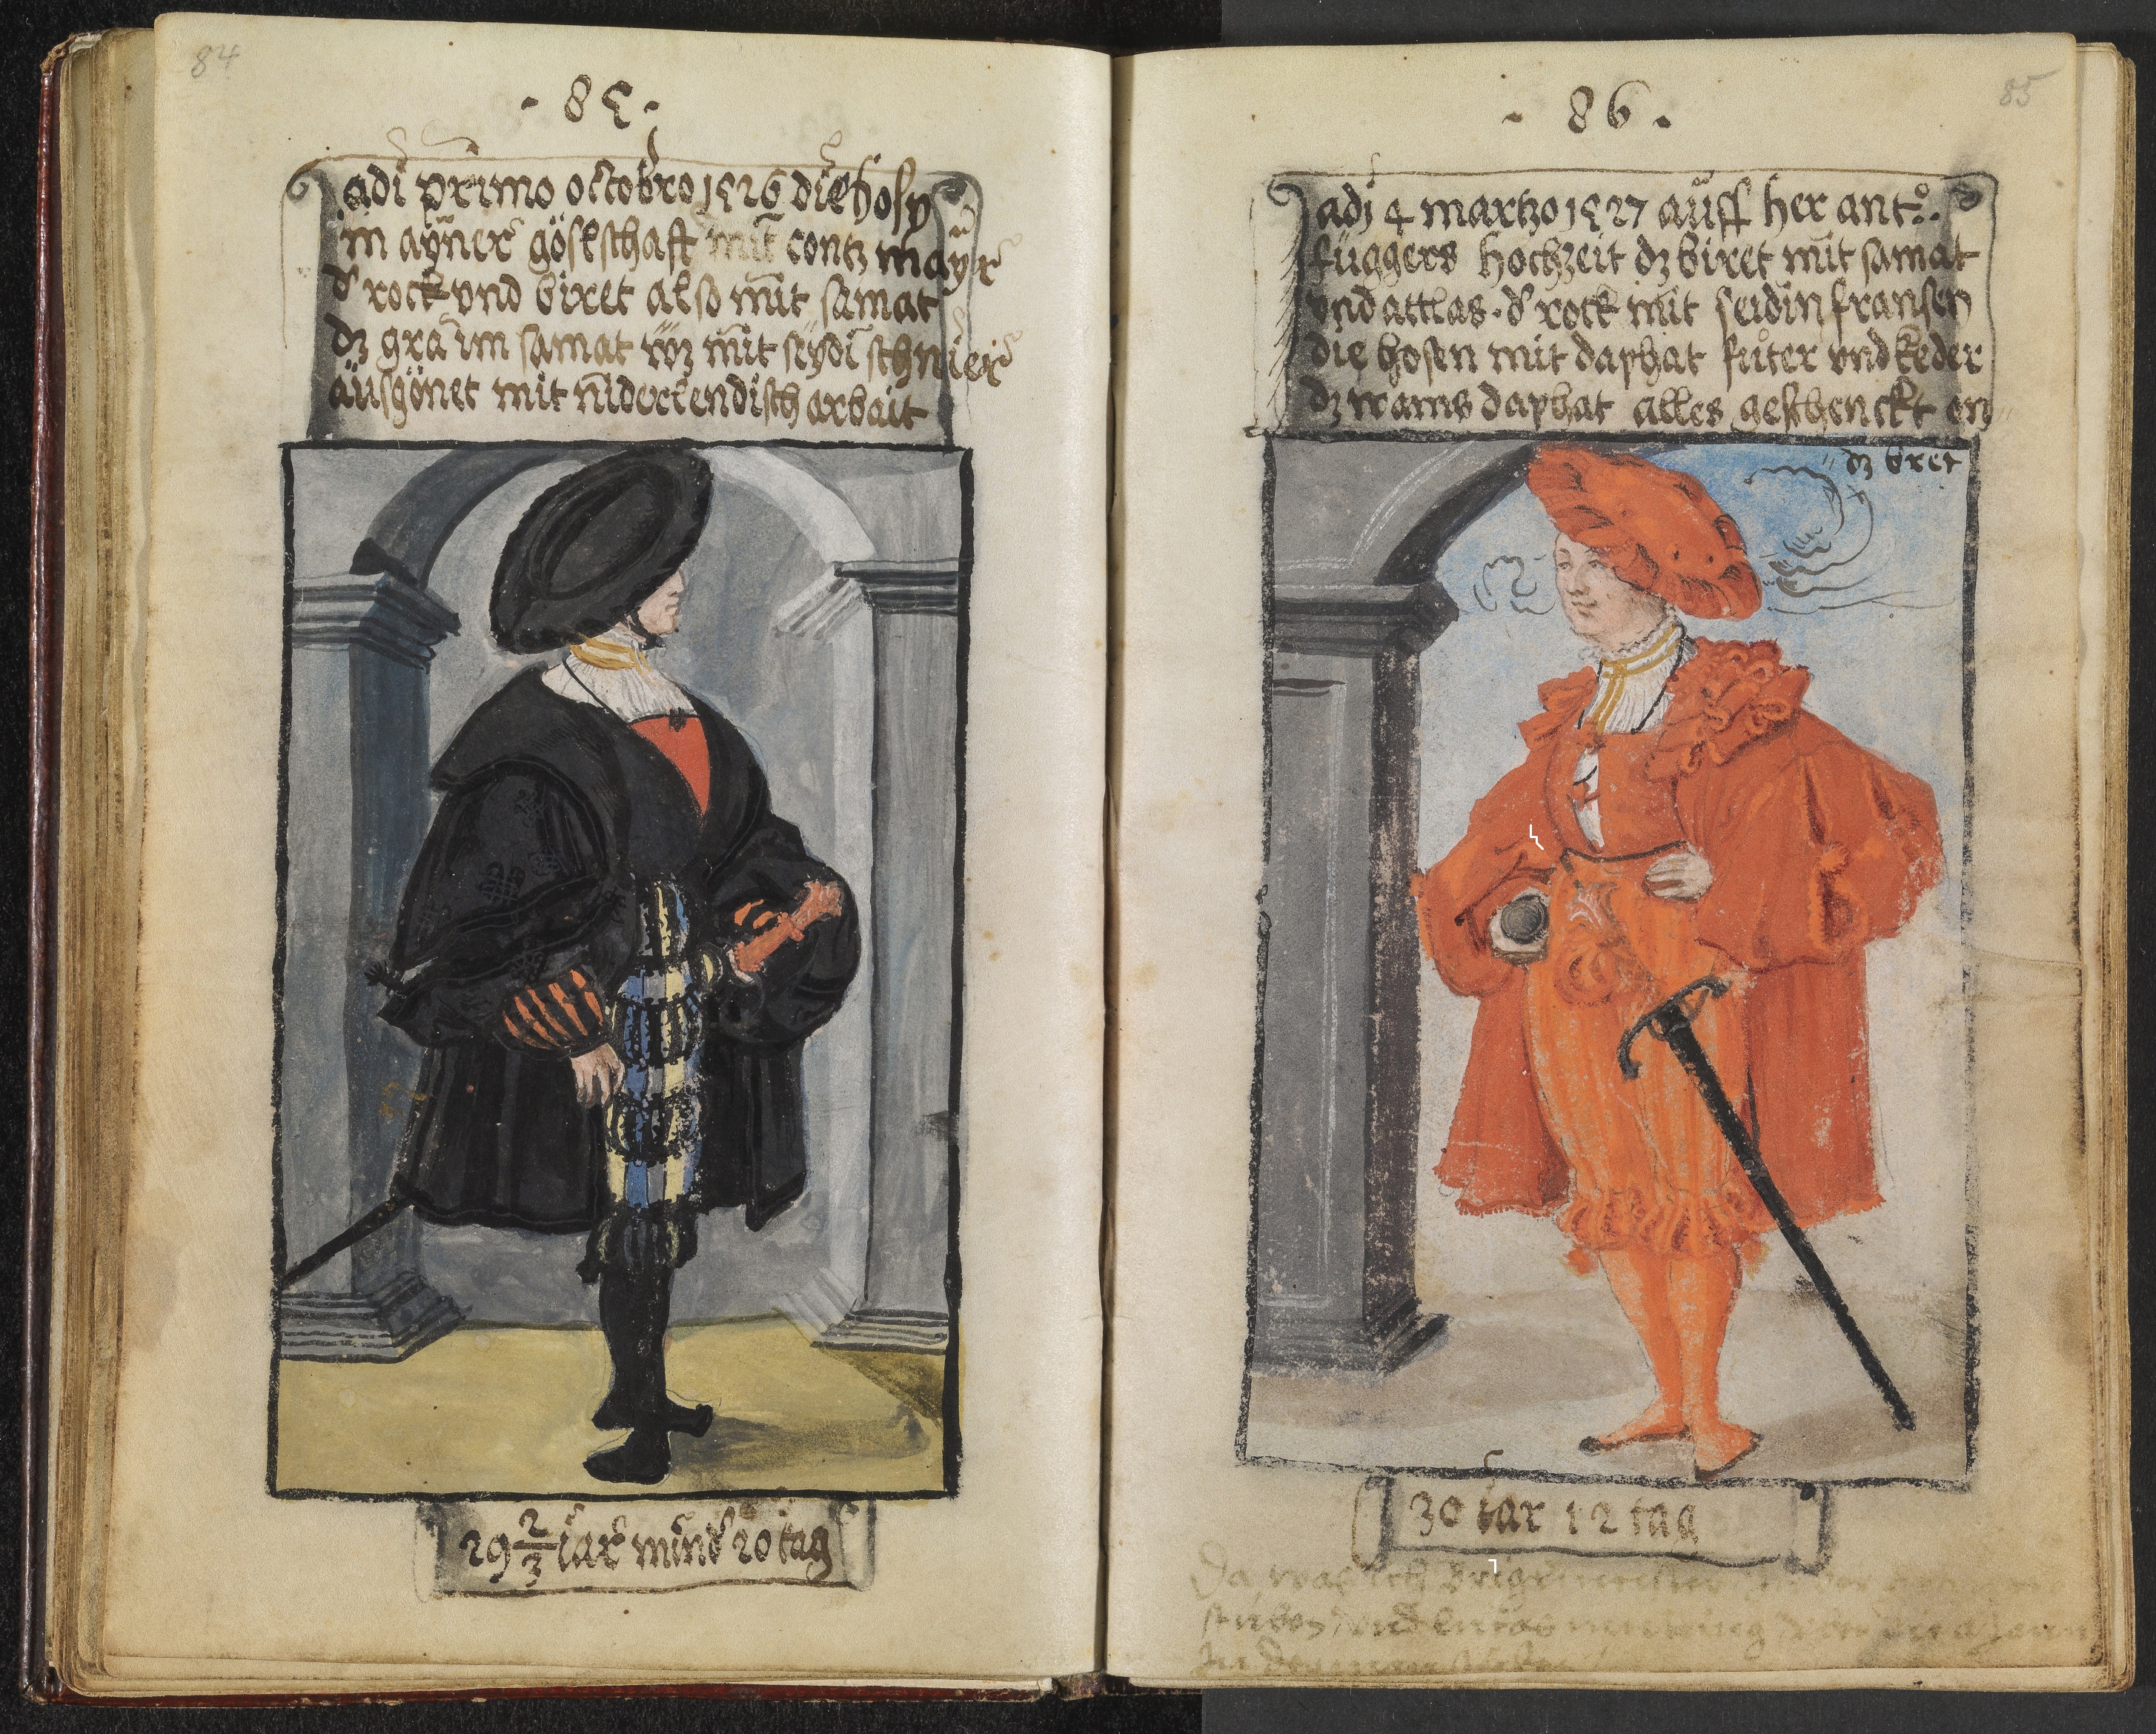 84
· 85 ·
adi primo octobro 1526 die hosy
in ayner göselschaft mit contz mayr
dʳ rock vnd biret also mit samat
dz gra im samat wz mit sydi schnier
ausgönet mit niderlendisch arbait
29 2/3 iar mind 20 tag
85
· 86 ·
adj 4 martzo 1527 auff her ant°.
fuggers hochzeit dz biret mit samat
vnd attlas · dʳ rock mit seidin fransen
die hosen mit daphat futer vnd keder
dz wams daphat alles geschenckt on
dz bret
30 iar 12 tag
Da was ich
stuben vnd